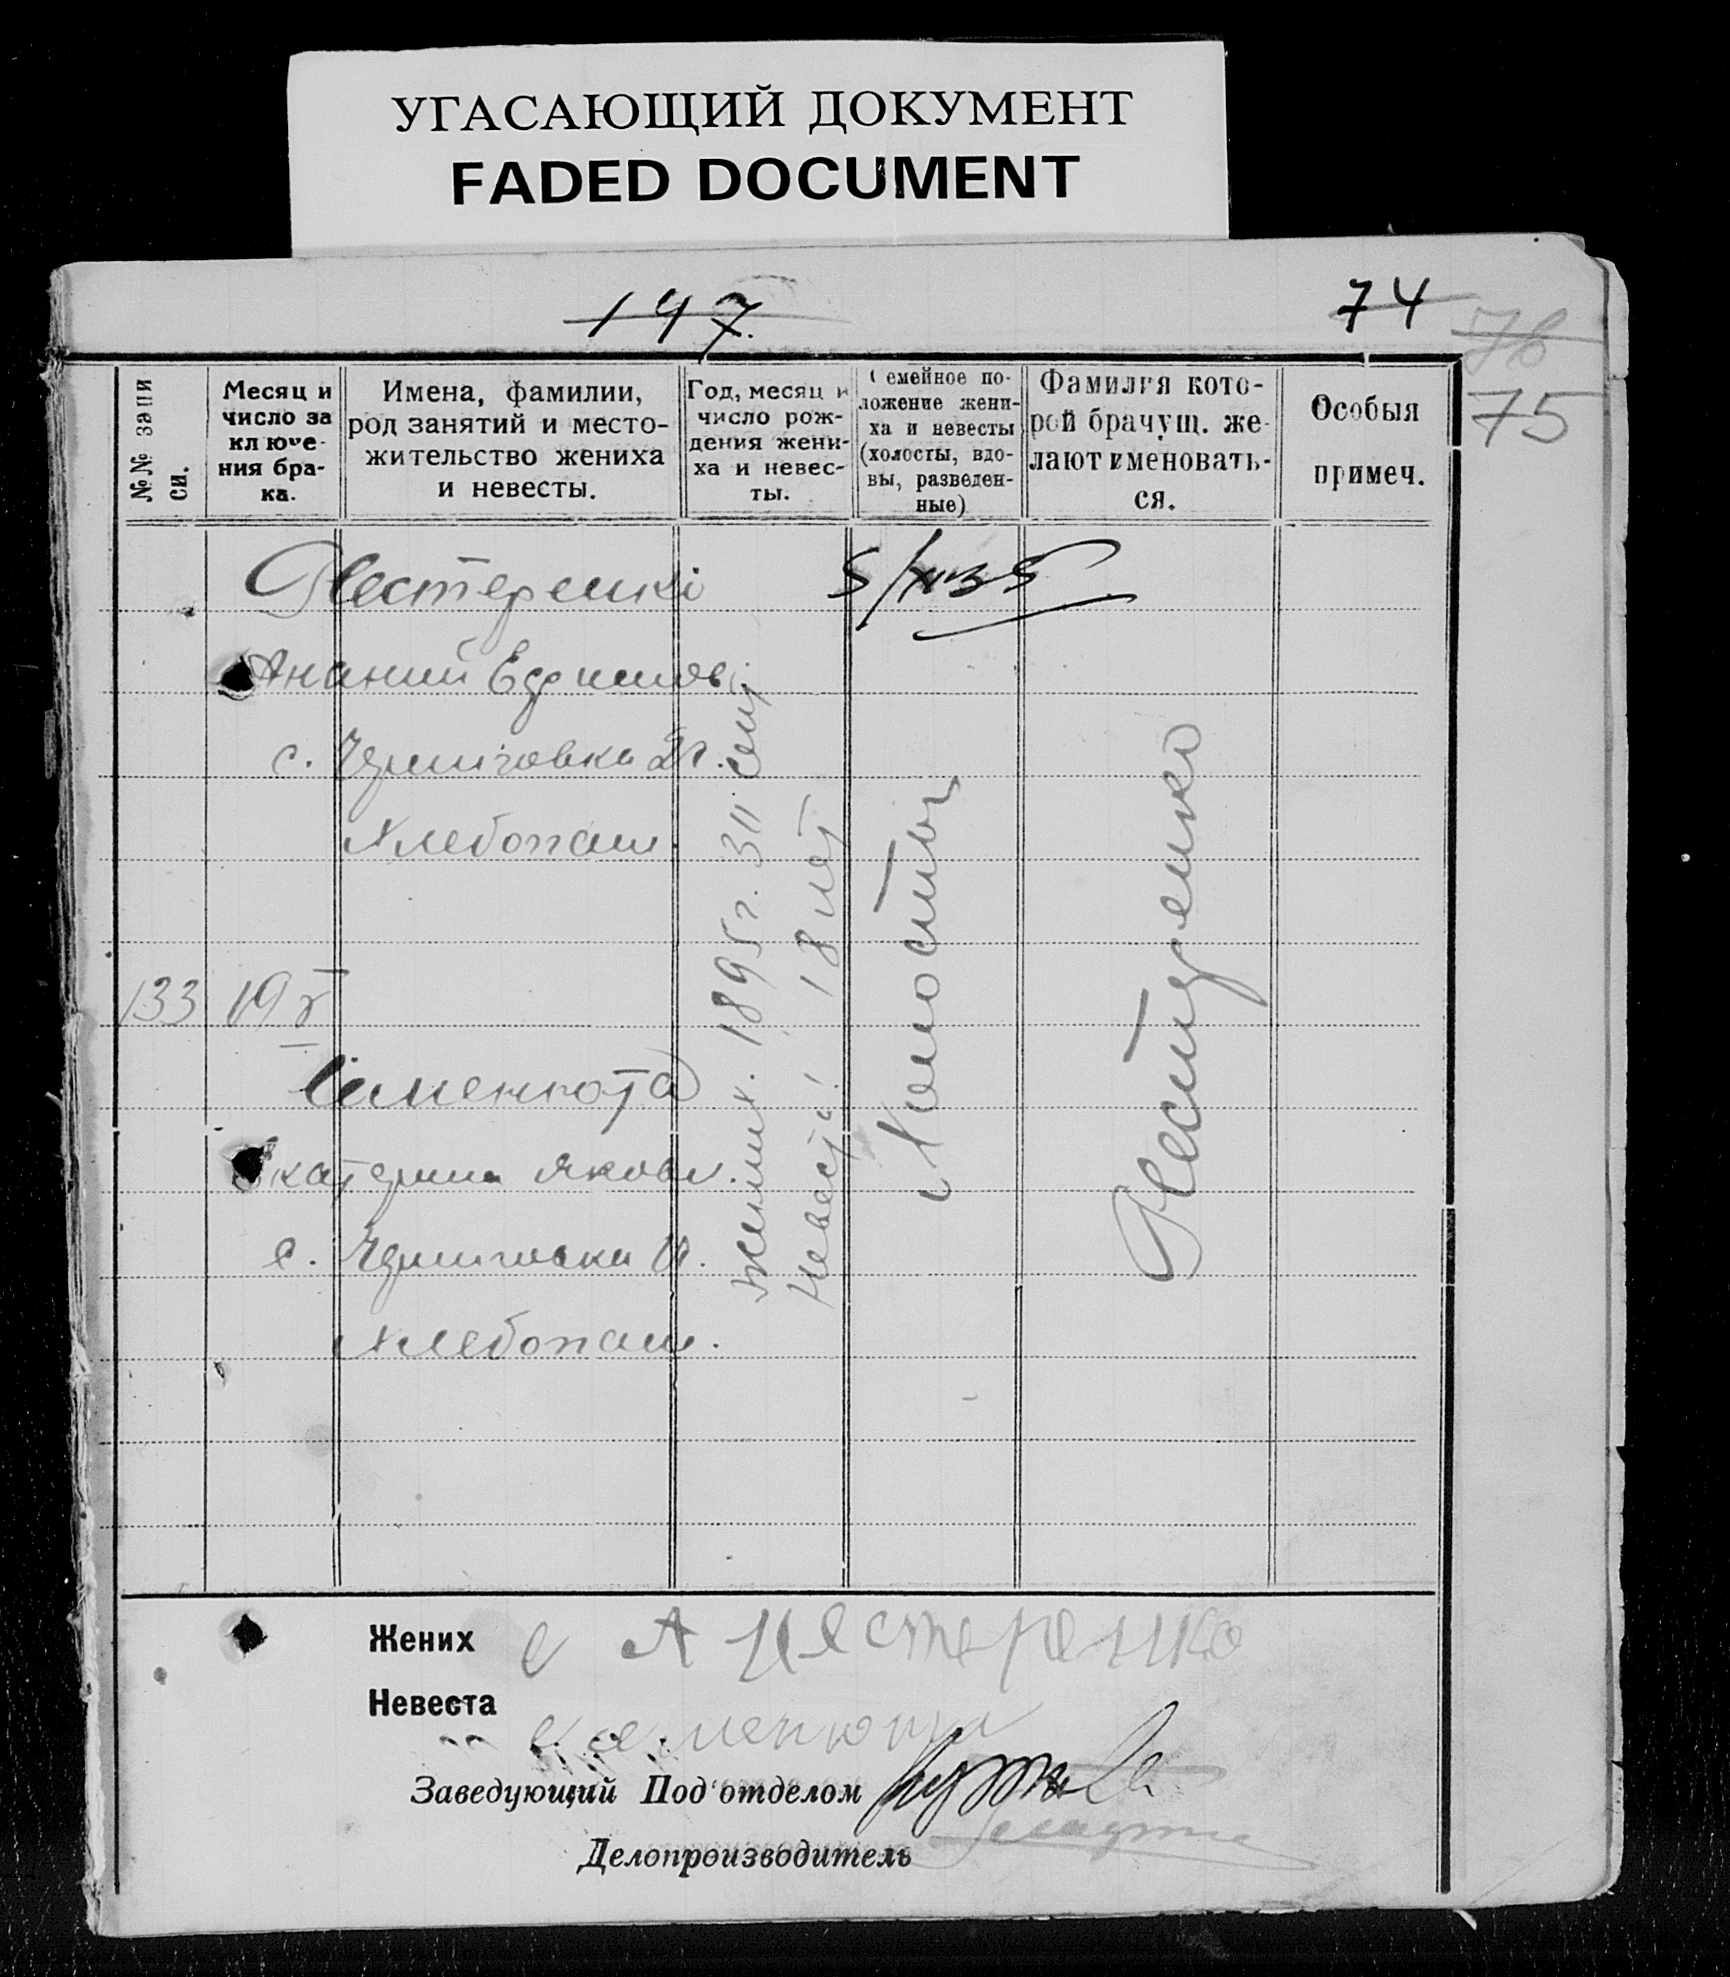 УГАСАЮЩИЙ ДОКУМЕНТ
FADED DOCUMENT
147.
74
76
75
№№ запи
си.
Месяц и
число за
ключе-
ния бра-
ка.
Имена, фамилии,
род занятий и место-
жительство жениха
и невесты.
Год, месяц и
число рож-
дения жени-
ха и невес-
ты.
Семейное по-
ложение жени-
ха и невесты
(холосты, вдо-
вы, разведен-
ные)
Фамилия кото-
рой брачущ. же-
лают именовать-
ся.
Особыя
примеч.
Нестеренко
Ананий Ефимов.
с. Черниговка 2й.
Хлебопаш.
133
19
Семенюта
Екатерина Яковл.
с. Черниговка
Хлебопаш.
Жених. 1895 г.
Невеста. 18 лет
Холосты
Нестеренко
Жених А Нестеренко
Невеста Семенюта
Заведующий Под'отделом
Делопроизводитель